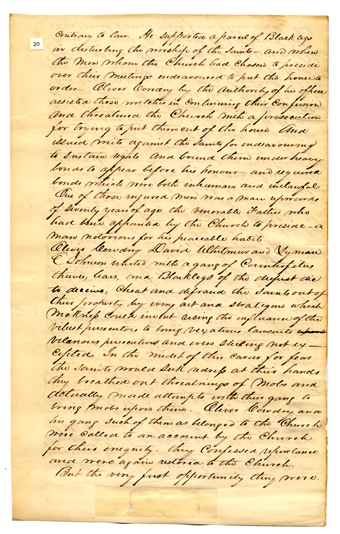 20
contrary to law. He supported a parcel of Blacklegs
in disturbing the worship of the Saints and when
the Men whom the Church had chosen to preside
over their Meetings endeavoured to put the house to
order Oliver Cowdry by the authority of his office
assisted those wretches in continuing their Confusion
and threatened the Church with a prosecution
for trying to put them out of the house And
issued writs against the Saints for endeavouring
to sustain rights and bound them under heavy
bonds to appear before his honour and required
bonds which were both inhuman and unlawful
One of those injured men was a man upwards
of seventy years of age the venerable Father who
had been appointed by the Church to preside — a
man notorious for his peaceable habits
Oliver Cowdry David Whitmer and Lyman
E Johnson united with a gang of Counterfeiters
thieves, liars, and Blacklegs of the deepest die
to deceive, Cheat and defraud the Saints out of
their property by every art and stratagem which
wickness could invent using the influence of the
vilest persecutors to bring vexatious lawsuits
vilanous prosecutions and even stealing not ex-
cepted. In the midst of this career for fear
the Saints would seek redress at their hands
they breathed out threatnings of Mobs and
actually made attempts with their gang to
bring mobs upon them. Oliver Cowdry and
his gang such of them as belonged to the Church
were called to an account by the Church
for their iniquity. they Confessed repentance
and were again restored to the Church.
But the very first opportunity they were